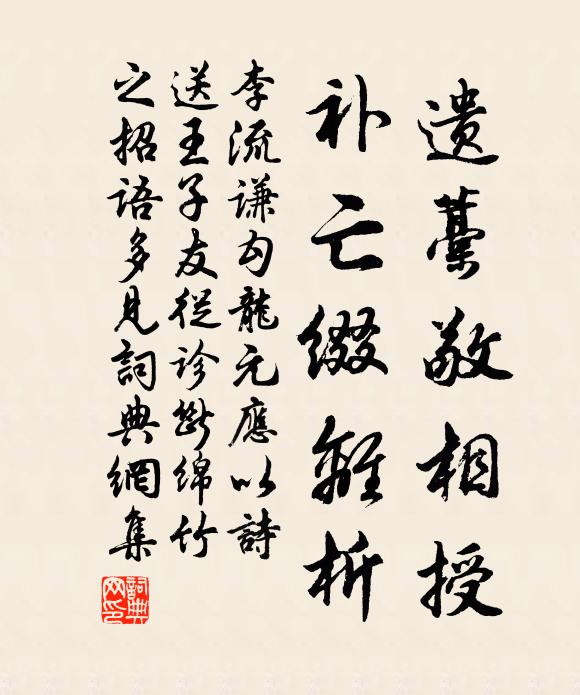 遗藁敬相授
补亡缀离析
李流谦勾龙元应以诗
送王子友从诊断绵竹
之招语多见词典网集
词典网印